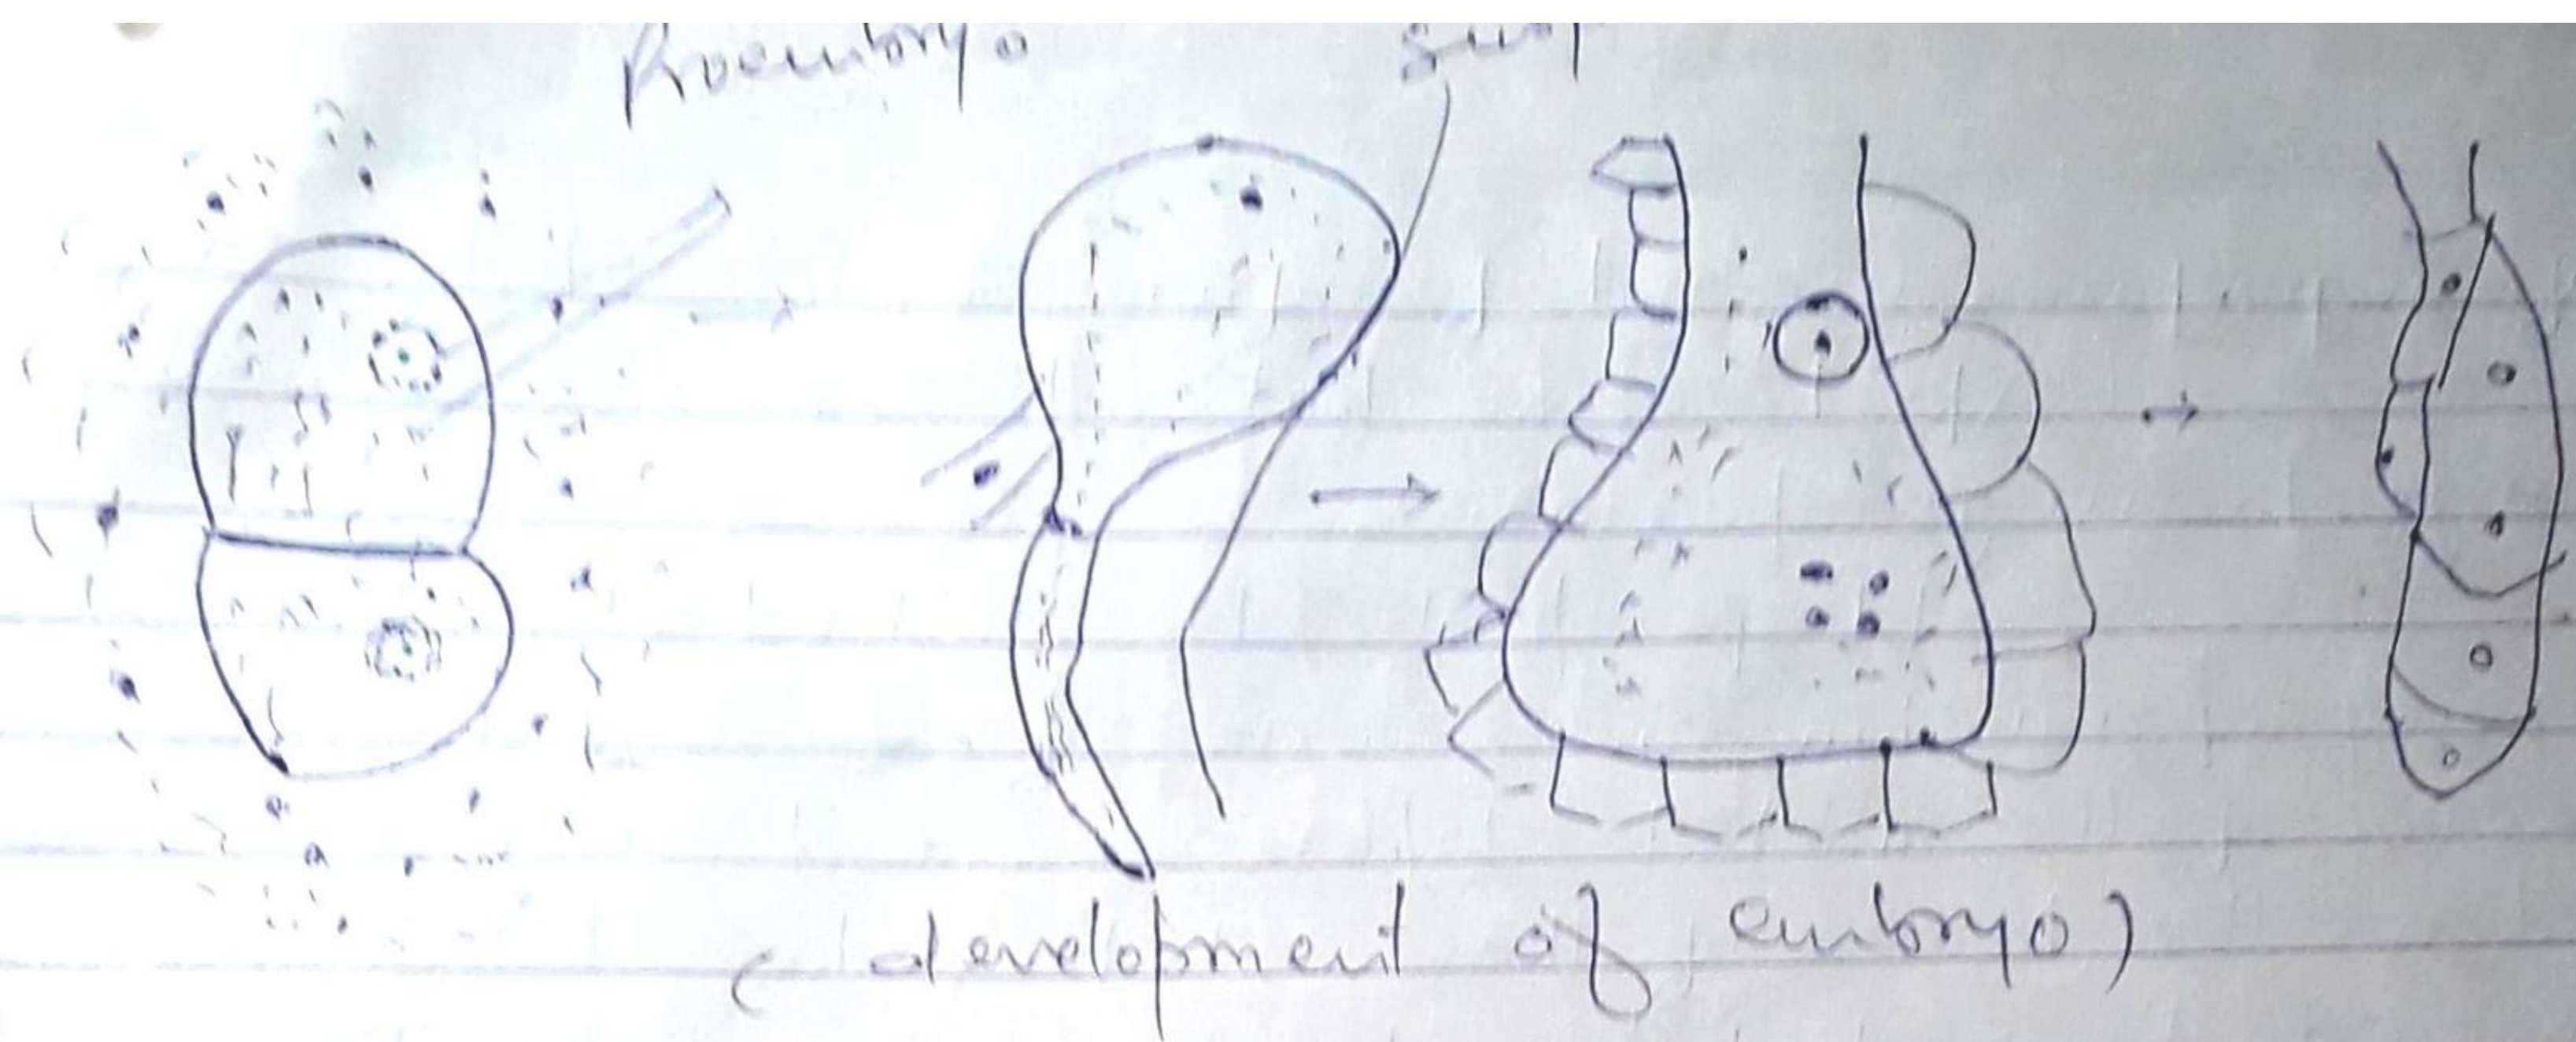 Proembryo
(development of embryo)